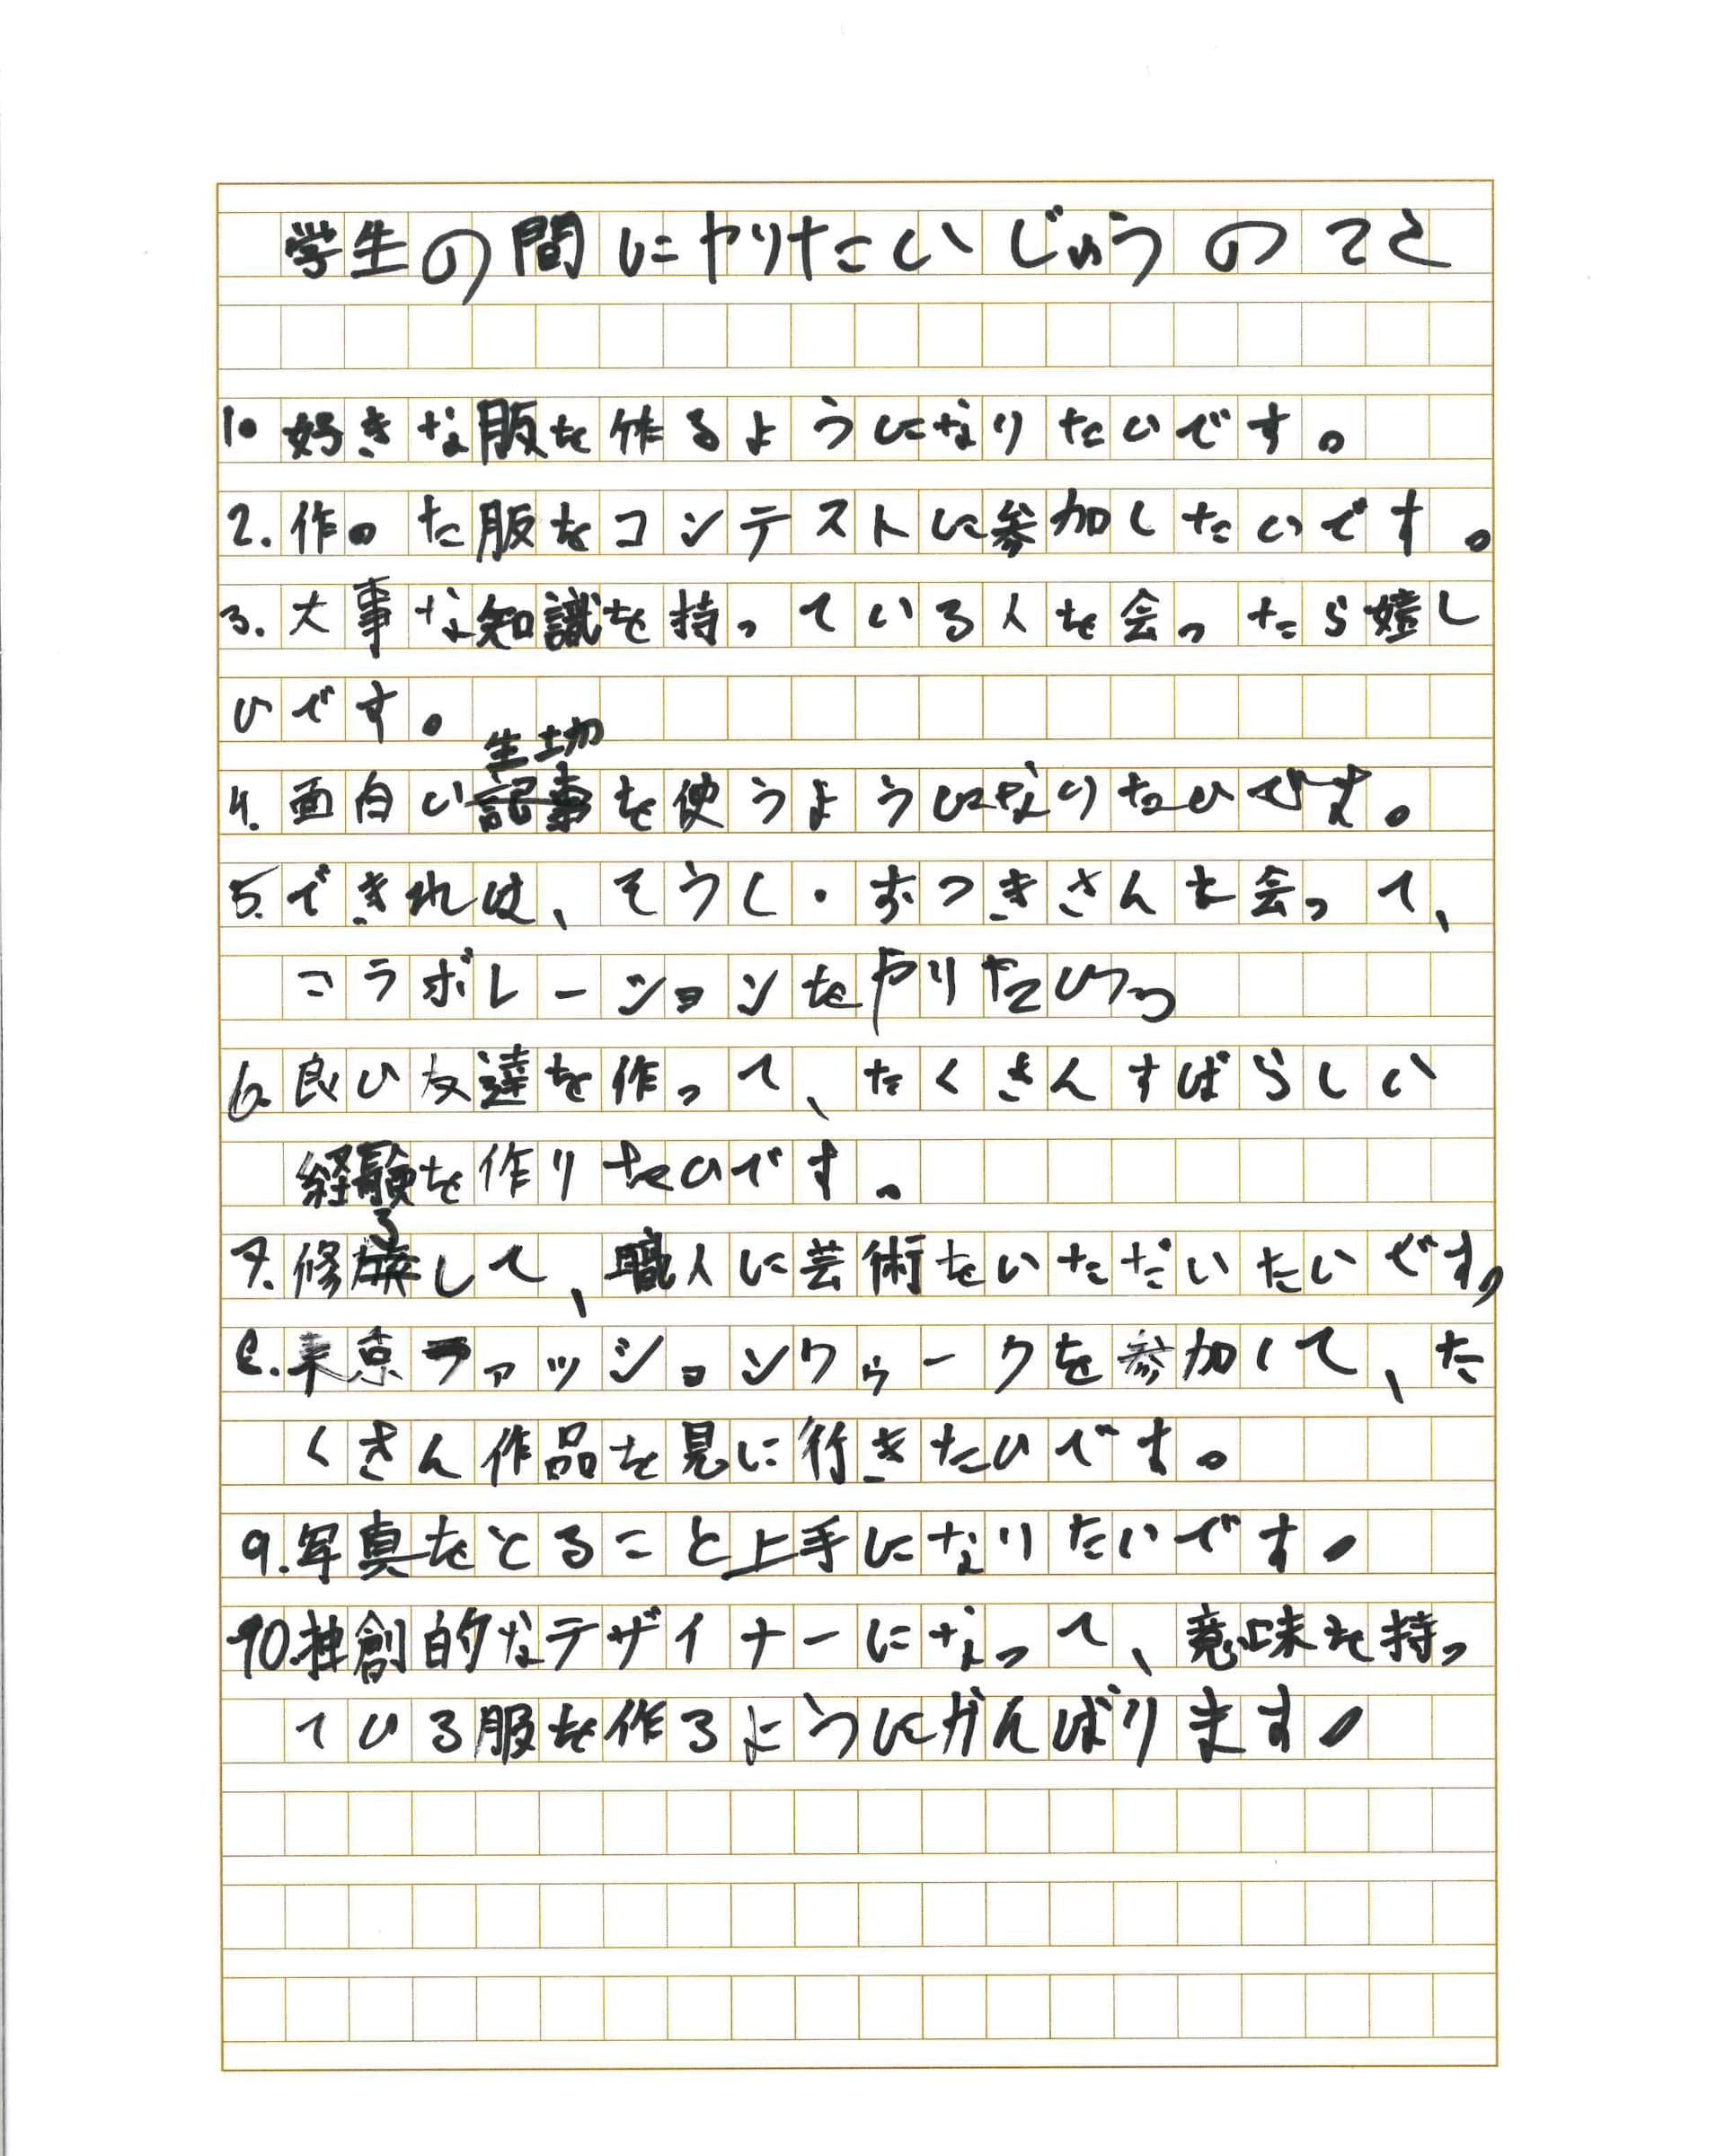 学生の間にやりたいじゅうのこと
1. 好きな服を作るようになりたいです。
2. 作った服をコンテストに参加したいです。
3. 大事な知識を持っている人を会ったら嬉し
いです。
生地
4. 面白い記事を使うようになりたいです。
5. できれば、そうし・おつきさんを会って、
コラボレーションをやりたいっつ
6. 良い友達を作って、たくさんすばらしい
経験を作りたいです。
る
7. 修旅して、職人に芸術をいただいたいです。
8. 東京ファッションウゥークを参加して、た
くさん作品を見に行きたいです。
9. 写真をとること上手になりたいです。
10. 独創的なデザイナーになって、意味を持っ
ている服を作るようにがんばります。